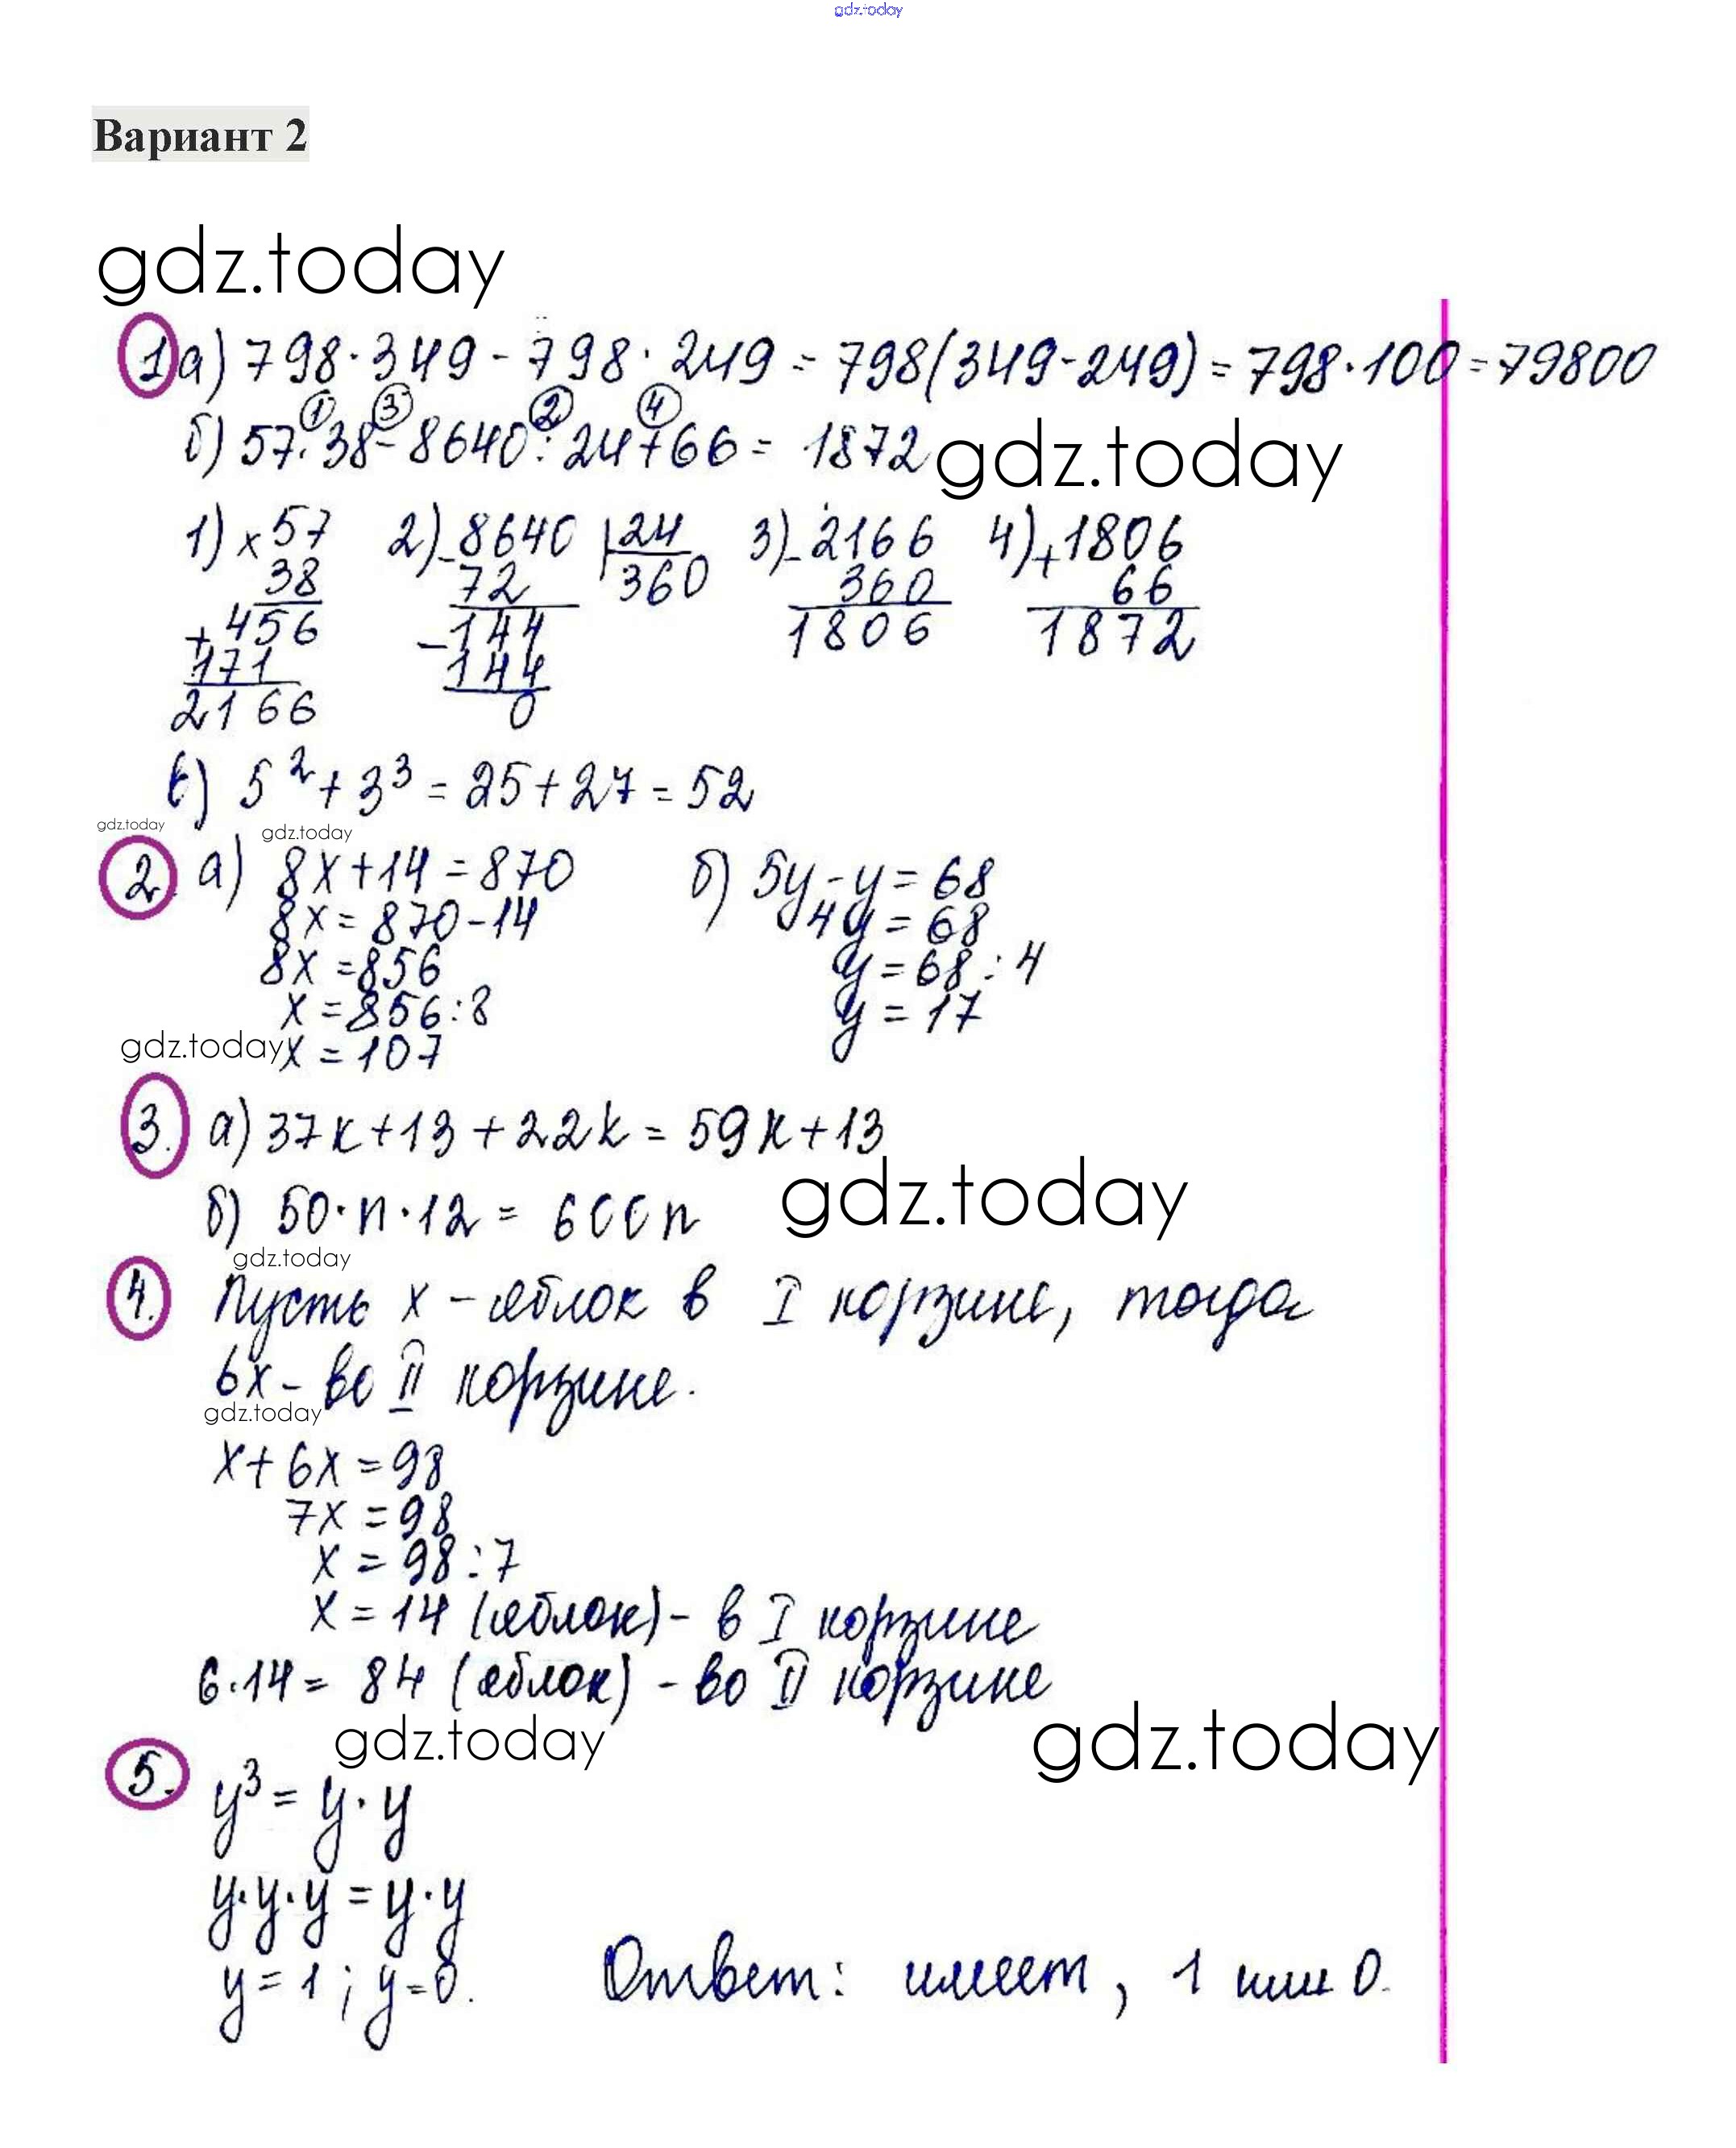 gdz.today
Вариант 2
gdz.today
1 а) 798·349-798·249=798(349-249)=798·100=79800
1 3 2 4
б) 57·38-8640:24+66=1872
gdz.today
1) ×57 2) -8640 |24 3) -2166 4) +1806
38 72 360 360 66
+456 -144 1806 1872
171 144
2166 0
в) 5²+3³=25+27=52
gdz.today gdz.today
2. а) 8x+14=870 б) 5y-y=68
8x=870-14 4y=68
8x=856 y=68:4
x=856:8 y=17
gdz.today x=107
3. а) 37k+13+22k=59k+13
gdz.today
б) 50·n·12=600n
gdz.today
4. Пусть x-яблок в I корзине, тогда
6x-во II корзине.
gdz.today
x+6x=98
7x=98
x=98:7
x=14 (яблок)-в I корзине
6·14=84 (яблок)-во II корзине
gdz.today gdz.today
5. y³=y·y
y·y·y=y·y
y=1; y=0. Ответ: имеет, 1 или 0.